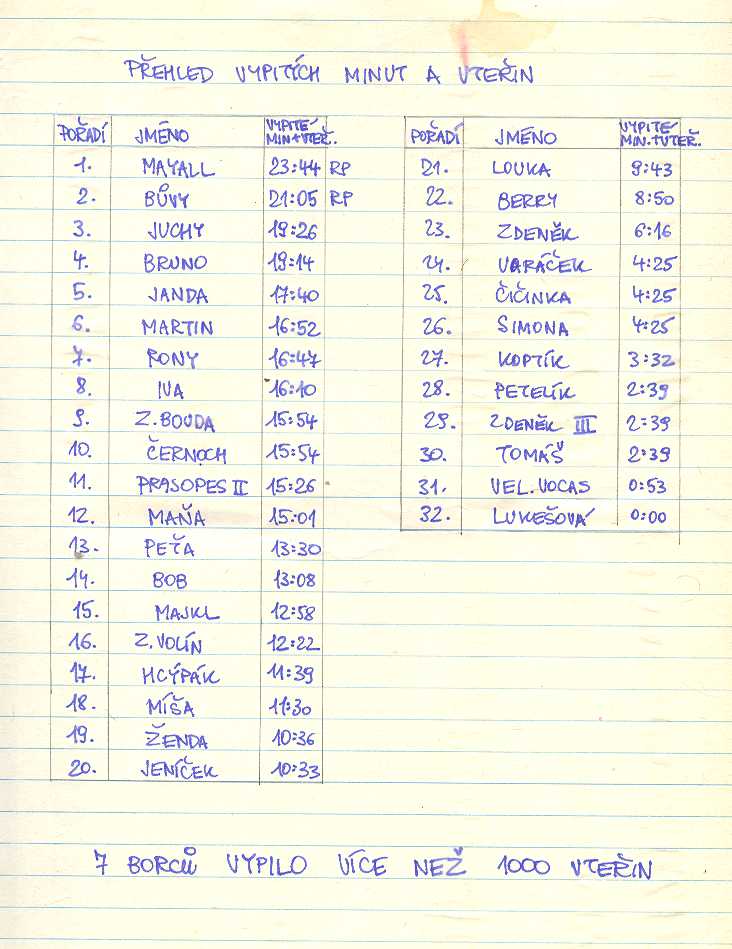 PŘEHLED VYPITÝCH MINUT A VTEŘIN
POŘADÍ JMÉNO VYPITÉ MIN+VTEŘ.
1. MAYALL 23:44 RP
2. BŮVY 21:05 RP
3. JUCHY 19:26
4. BRUNO 19:14
5. JANDA 17:40
6. MARTIN 16:52
7. RONY 16:47
8. IVA 16:10
9. Z.BOUDA 15:54
10. ČERNOCH 15:54
11. PRASOPES II 15:26
12. MAŇA 15:01
13. PEŤA 13:30
14. BOB 13:08
15. MAJKL 12:58
16. Z.VOLÍN 12:22
17. HCÝPÁK 11:39
18. MÍŠA 11:30
19. ŽENDA 10:36
20. JENÍČEK 10:33
POŘADÍ JMÉNO VYPITÉ MIN.+VTEŘ.
21. LOUKA 9:43
22. BERRY 8:50
23. ZDENĚK 6:16
24. VARÁČEK 4:25
25. ČIČINKA 4:25
26. SIMONA 4:25
27. KOPTÍK 3:32
28. PETELÍK 2:39
29. ZDENĚK III 2:39
30. TOMÁŠ 2:39
31. VEL.VOCAS 0:53
32. LUKEŠOVÁ 0:00
7 BORCŮ VYPILO VÍCE NEŽ 1000 VTEŘIN